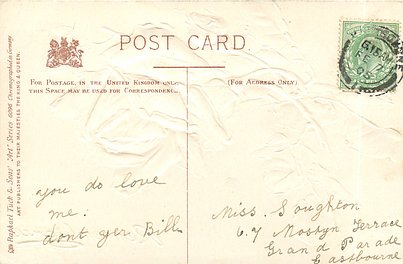 POST CARD.
FOR POSTAGE, IN THE UNITED KINGDOM ONLY,
THIS SPACE MAY BE USED FOR CORRESPONDENCE.
(FOR ADDRESS ONLY)
Raphael Tuck & Sons' "Art" Series 6096 Chromographed in Germany
ART PUBLISHERS TO THEIR MAJESTIES THE KING & QUEEN.
you do love
me.
dont yer Bill
Miss Soughton
6.7 Mostyn Terrace
Grand Parade
Eastbourne